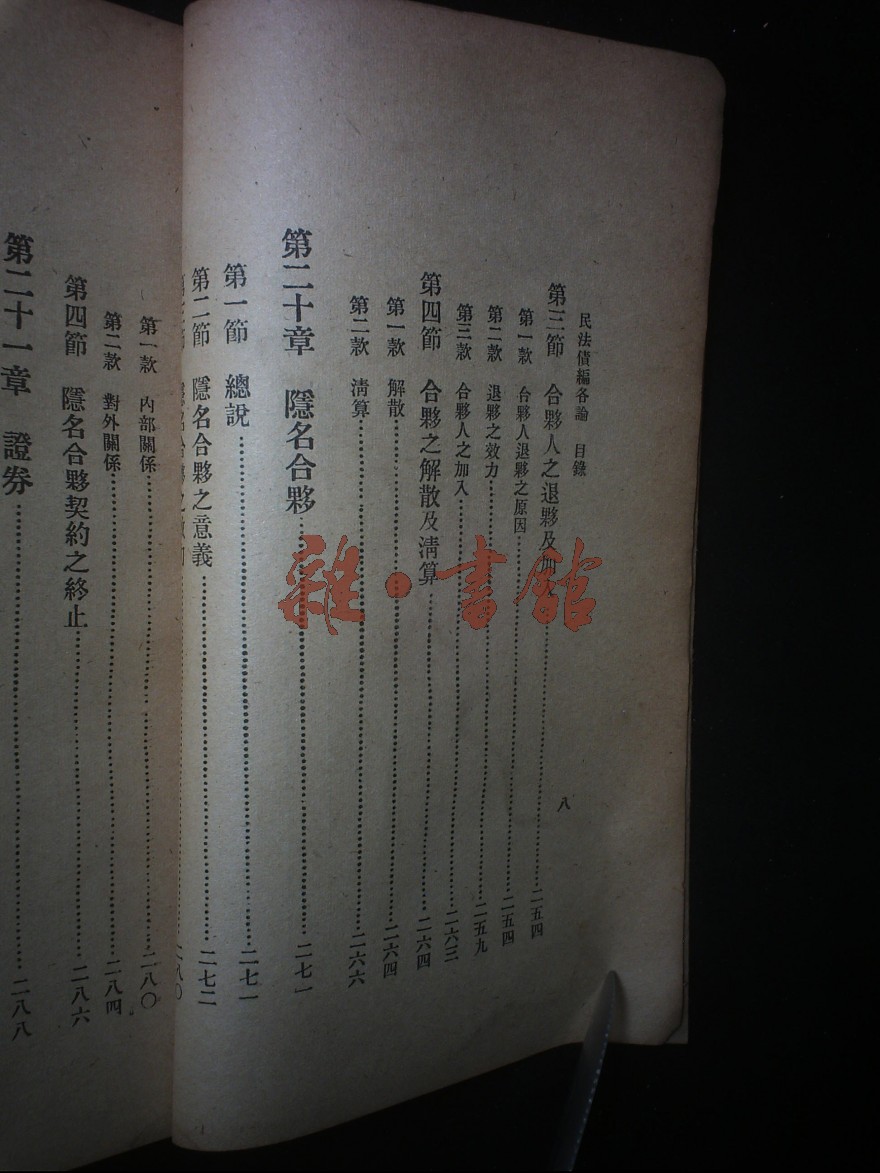 民法債編各論　目錄
八
第三節　合夥人之退夥及加……二五四
第一款　合夥人退夥之原因……二五四
第二款　退夥之效力……二五九
第三款　合夥人之加入……二六三
第四節　合夥之解散及淸算……二六四
第一款　解散……二六四
第二款　淸算……二六六
第二十章　隱名合夥……二七一
第一節　總說……二七一
第二節　隱名合夥之意義……二七二
二八〇
第一款　內部關係……二八〇
第二款　對外關係……二八四
第四節　隱名合夥契約之終止……二八六
第二十一章　證券……二八八
雜·書館